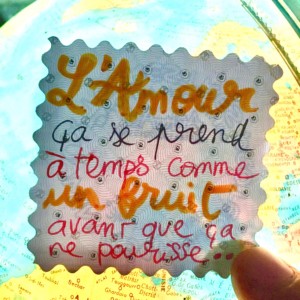 L'Amour
ça se prend
à temps comme
un fruit
avant que ça
ne pourrisse...